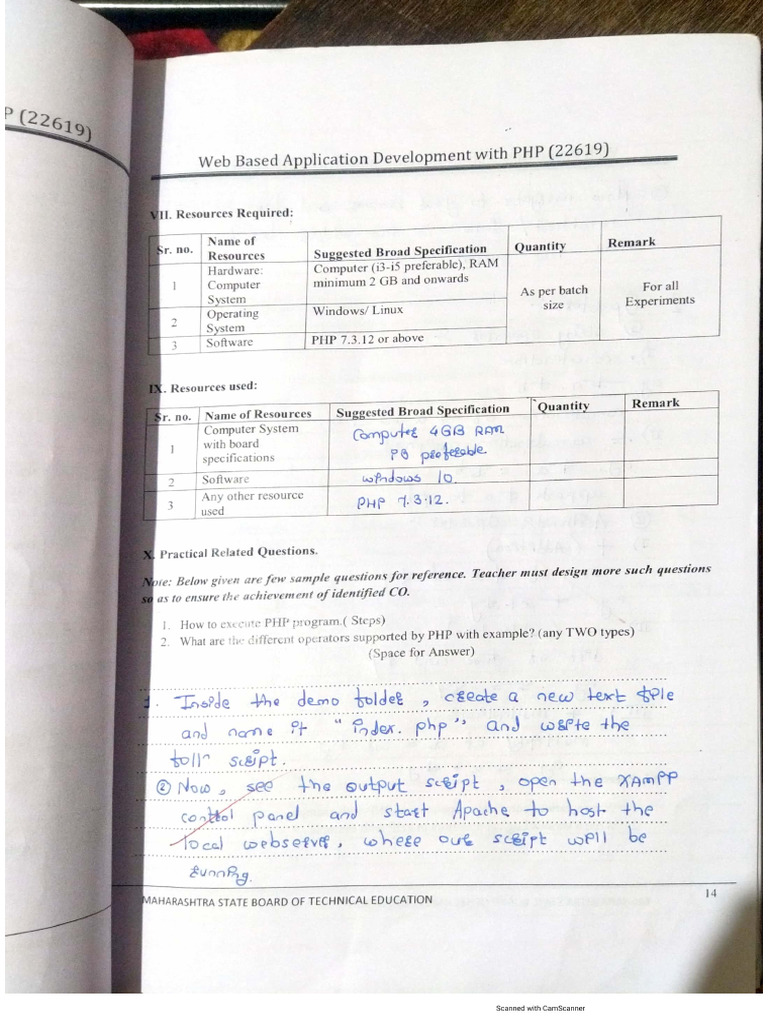 P (22619)
Web Based Application Development with PHP (22619)
VII. Resources Required:
Sr. no. Name of Resources Suggested Broad Specification Quantity Remark
1 Hardware: Computer System Computer (i3-i5 preferable), RAM minimum 2 GB and onwards As per batch size For all Experiments
2 Operating System Windows/ Linux
3 Software PHP 7.3.12 or above
IX. Resources used:
Sr. no. Name of Resources Suggested Broad Specification Quantity Remark
1 Computer System with board specifications Computer 4GB RAM preferable
2 Software windows 10.
3 Any other resource used PHP 7.3.12.
X. Practical Related Questions.
Note: Below given are few sample questions for reference. Teacher must design more such questions
so as to ensure the achievement of identified CO.
1. How to execute PHP program.( Steps)
2. What are the different operators supported by PHP with example? (any TWO types)
(Space for Answer)
1. Inside the demo folder, create a new text file
and name it "index.php" and write the
foll^n script.
② Now, see the output script, open the XAMPP
control panel and start Apache to host the
local webserver, where our script will be
running.
MAHARASHTRA STATE BOARD OF TECHNICAL EDUCATION
14
Scanned with CamScanner